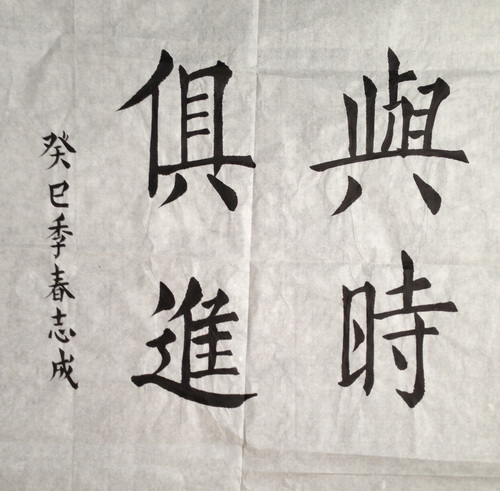 與時
俱進
癸巳季春志成